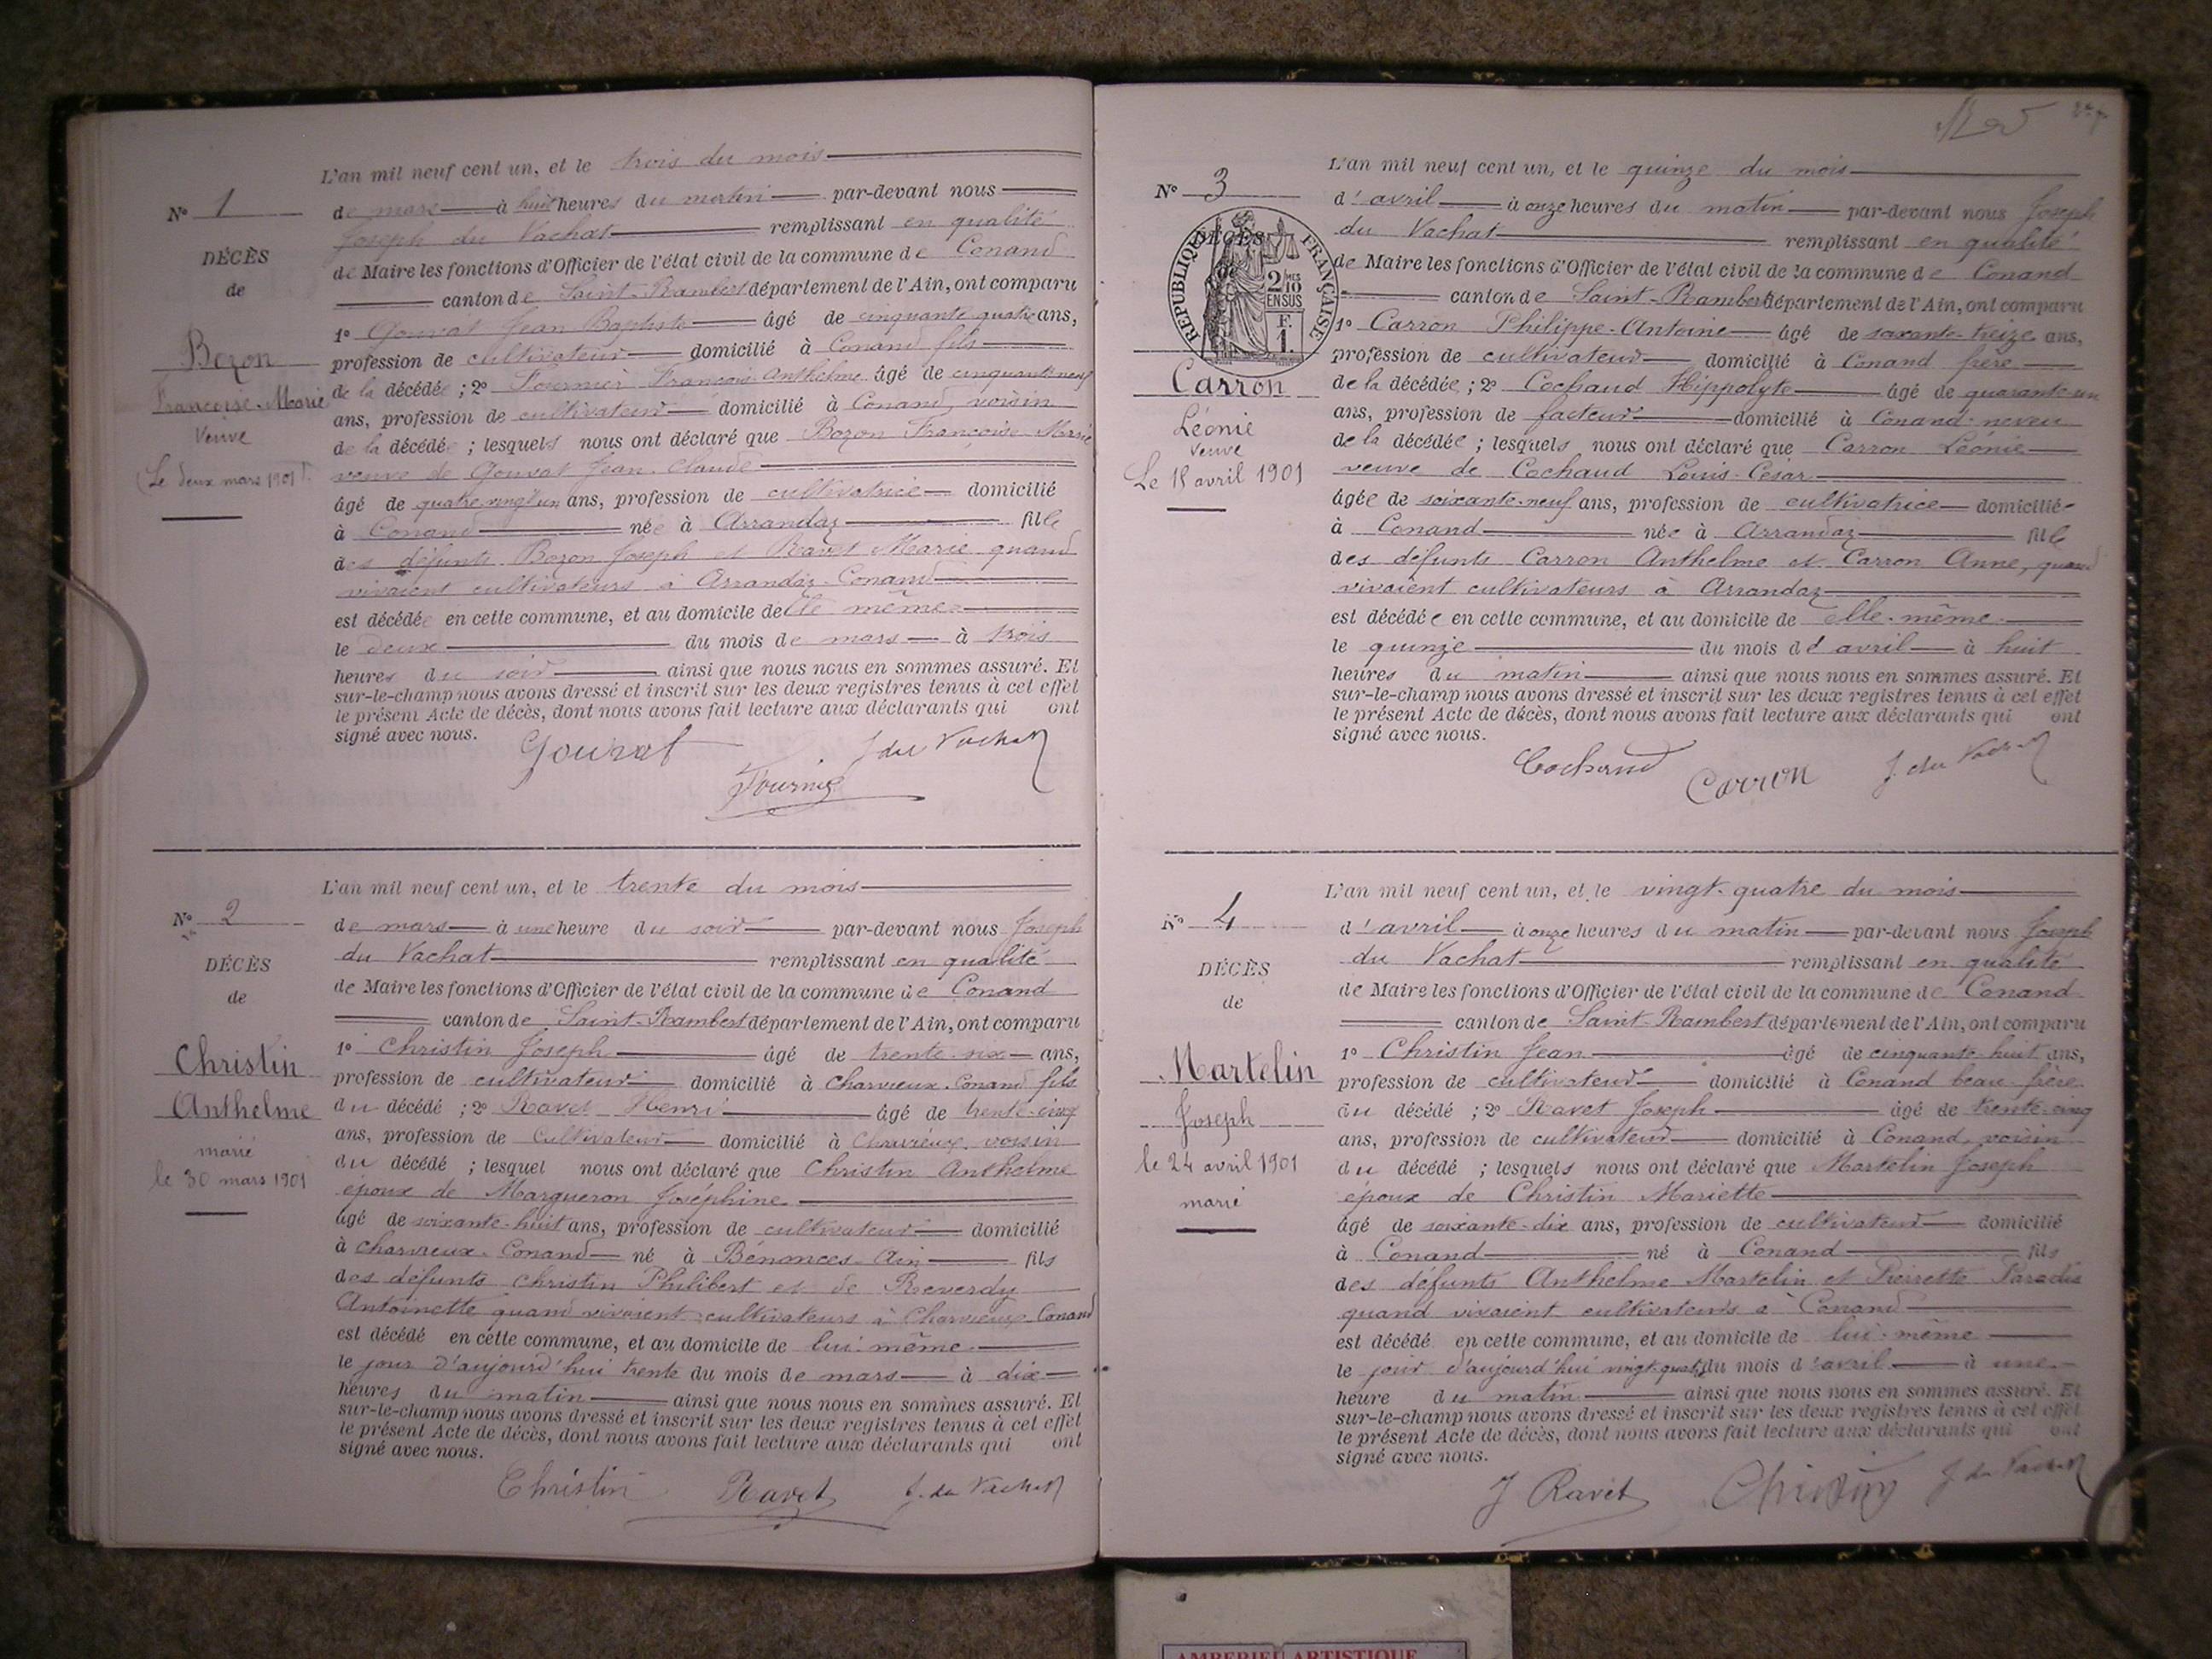 L'an mil neuf cent un, et le trois du mois
N° 1
de mars à huit heures du matin par-devant nous
Joseph du Vachat remplissant en qualité
DÉCÈS
de Maire les fonctions d'Officier de l'état civil de la commune de Conand
de
canton de Saint-Rambert département de l'Ain, ont comparu
1° Gouvat Jean Baptiste âgé de cinquante quatre ans,
Bozon
profession de cultivateur domicilié à Conand fils
Françoise-Marie
de la décédée ; 2° Fournier François Anthelme âgé de cinquante neuf
Veuve
ans, profession de cultivateur domicilié à Conand, voisin
de la décédée ; lesquels nous ont déclaré que Bozon Françoise Marie
Le deux mars 1901
veuve de Gouvat Jean-Claude
âgé de quatre vingt un ans, profession de cultivatrice domicilié
à Conand née à Arrandaz fille
des défunts Bozon Joseph et Ravet Marie quand
vivaient cultivateurs à Arrandaz-Conand
est décédée en cette commune, et au domicile de elle même
le deux du mois de mars à trois
heures du soir ainsi que nous nous en sommes assuré. Et
sur-le-champ nous avons dressé et inscrit sur les deux registres tenus à cet effet
le présent Acte de décès, dont nous avons fait lecture aux déclarants qui ont
signé avec nous.
Gouvat J du Vachat
Fournier
L'an mil neuf cent un, et le trente du mois
N° 2
de mars à une heure du soir par-devant nous Joseph
du Vachat remplissant en qualité
DÉCÈS
de Maire les fonctions d'Officier de l'état civil de la commune de Conand
de
canton de Saint-Rambert département de l'Ain, ont comparu
1° Christin Joseph âgé de trente-six ans,
Christin
profession de cultivateur domicilié à Charvieux-Conand fils
Anthelme
du décédé ; 2° Ravet Henri âgé de trente-cinq
marié
ans, profession de Cultivateur domicilié à Charvieux, voisin
le 30 mars 1901
du décédé ; lesquel nous ont déclaré que Christin Anthelme
époux de Margueron Joséphine
âgé de soixante-huit ans, profession de cultivateur domicilié
à Charvieux-Conand né à Bénonces-Ain fils
des défunts Christin Philibert et de Reverdy
Antoinette quand vivaient cultivateurs à Charvieux Conand
est décédé en cette commune, et au domicile de lui-même
le jour d'aujourd'hui trente du mois de mars à dix
heures du matin ainsi que nous nous en sommes assuré. Et
sur-le-champ nous avons dressé et inscrit sur les deux registres tenus à cet effet
le présent Acte de décès, dont nous avons fait lecture aux déclarants qui ont
signé avec nous.
Christin Ravet J. du Vachat
L'an mil neuf cent un, et le quinze du mois
N° 3
d'avril à onze heures du matin par-devant nous Joseph
du Vachat remplissant en qualité
DÉCÈS
RÉPUBLIQUE FRANÇAISE
2/10 MES
EN SUS
F.
1
de Maire les fonctions d'Officier de l'état civil de la commune de Conand
canton de Saint-Rambert département de l'Ain, ont comparu
1° Carron Philippe-Antoine âgé de soixante-treize ans,
profession de cultivateur domicilié à Conand frère
Carron
de la décédée ; 2° Cochaud Hippolyte âgé de quarante-un
Léonie
ans, profession de facteur domicilié à Conand-neveu
veuve
de la décédée ; lesquels nous ont déclaré que Carron Léonie
Le 15 avril 1901
veuve de Cochaud Louis-César
âgée de soixante-neuf ans, profession de cultivatrice domiciliée
à Conand née à Arrandaz fille
des défunts Carron Anthelme et Carron Anne, quand
vivaient cultivateurs à Arrandaz
est décédée en cette commune, et au domicile de elle-même
le quinze du mois d'avril à huit
heures du matin ainsi que nous nous en sommes assuré. Et
sur-le-champ nous avons dressé et inscrit sur les deux registres tenus à cet effet
le présent Acte de décès, dont nous avons fait lecture aux déclarants qui ont
signé avec nous.
Cochaud Carron J. du Vachat
L'an mil neuf cent un, et le vingt-quatre du mois
N° 4
d'avril à onze heures du matin par-devant nous Joseph
du Vachat remplissant en qualité
DÉCÈS
de Maire les fonctions d'Officier de l'état civil de la commune de Conand
de
canton de Saint-Rambert département de l'Ain, ont comparu
1° Christin Jean âgé de cinquante-huit ans,
Martelin
profession de cultivateur domicilié à Conand beau-frère
Joseph
du décédé ; 2° Ravet Joseph âgé de trente-cinq
ans, profession de cultivateur domicilié à Conand, voisin
le 24 avril 1901
du décédé ; lesquels nous ont déclaré que Martelin Joseph
marié
époux de Christin Mariette
âgé de soixante-dix ans, profession de cultivateur domicilié
à Conand né à Conand fils
des défunts Anthelme Martelin et Pierrette Paradis
quand vivaient cultivateurs à Conand
est décédé en cette commune, et au domicile de lui-même
le jour d'aujourd'hui vingt-quatre du mois d'avril à une
heure du matin ainsi que nous nous en sommes assuré. Et
sur-le-champ nous avons dressé et inscrit sur les deux registres tenus à cet effet
le présent Acte de décès, dont nous avons fait lecture aux déclarants qui ont
signé avec nous.
J Ravet Christin J du Vachat
AMBERIEU ARTISTIQUE